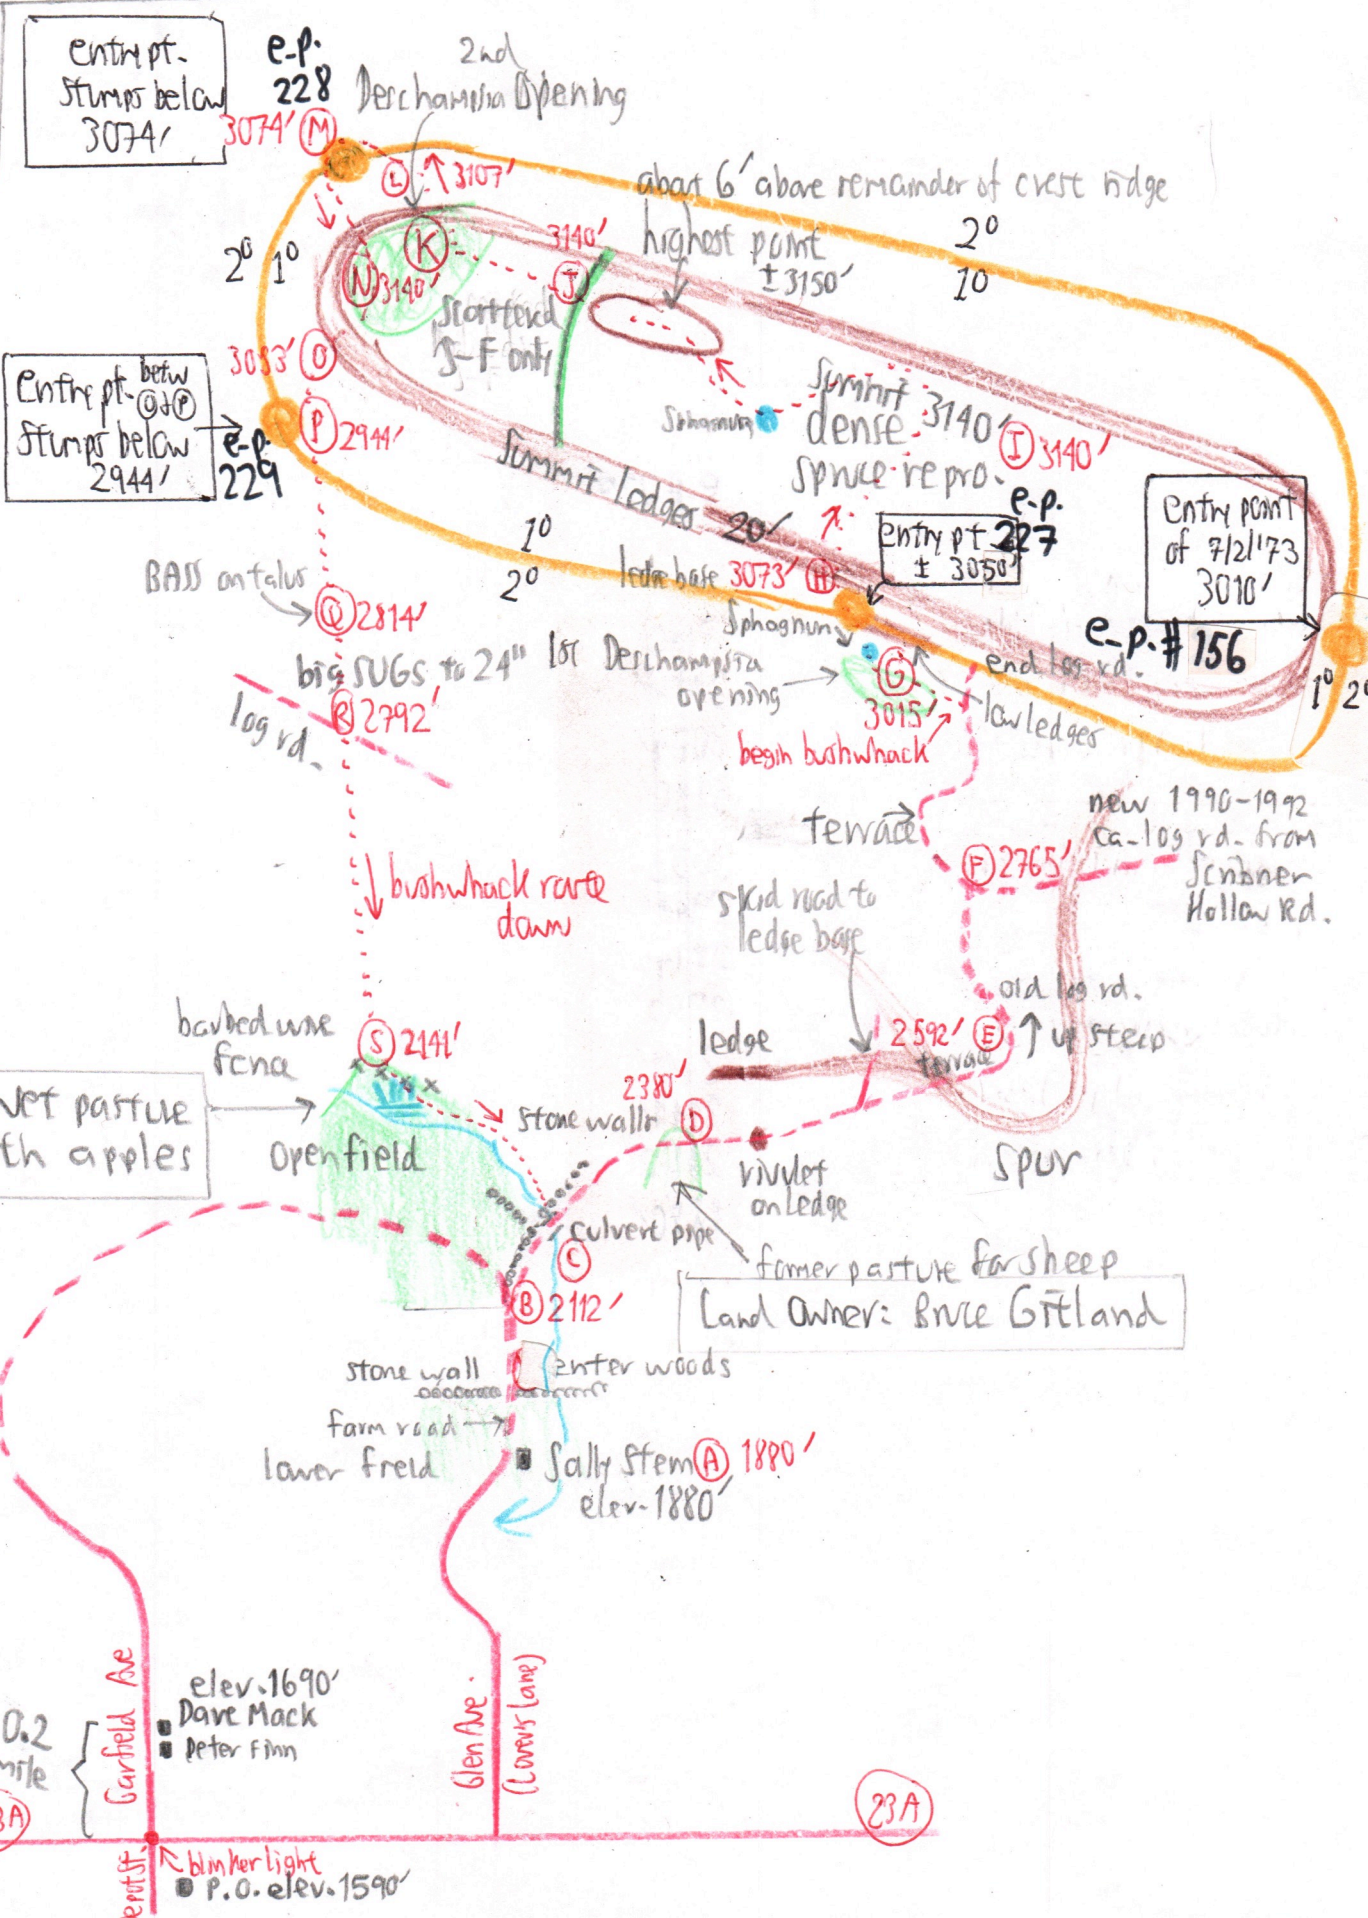 entry pt.
stumps below
3074'
e-p.
228
2nd
Deschampsia Opening
3074' M
L
3107'
about 6' above remainder of crest ridge
highest point
± 3150'
2°
1°
2° 1°
K
3140'
J
N 3140'
scattered
S-F only
3033' O
entry pt. betw
O & P
stumps below
2944'
e-p.
229
P 2944'
Sphagnum
summit 3140'
dense
spruce repro.
I 3140'
Summit Ledges 20'
1°
2°
e-p.
227
entry pt
± 3050'
entry point
of 7/2/'73
3010'
e-p. # 156
1° 2°
ledge base 3073' H
BASS on talus
Q 2814'
Sphagnum
big SUGS to 24"
1st Deschampsia
opening
G
3015'
end log rd.
low ledges
begin bushwhack
log rd.
R 2792'
terrace
new 1990-1992
ca. log rd. from
Scribner
Hollow Rd.
F 2765'
bushwhack route
down
skid road to
ledge base
old log rd.
2592' E
up steep
terrace
barbed wire
fence
S 2141'
ledge
2380'
D
stone walls
wet pasture
th apples
Open field
rivulet
on ledge
spur
culvert pipe
C
former pasture for sheep
Land Owner: Bruce Gitland
B 2112'
stone wall
enter woods
farm road
lower field
Sally Stem A 1880'
elev. 1880'
Garfield Ave
elev. 1690'
Dave Mack
Peter Finn
0.2
mile
Glen Ave.
(Lovers Lane)
3A
23A
blinker light
P.O. elev. 1590'
epot St.